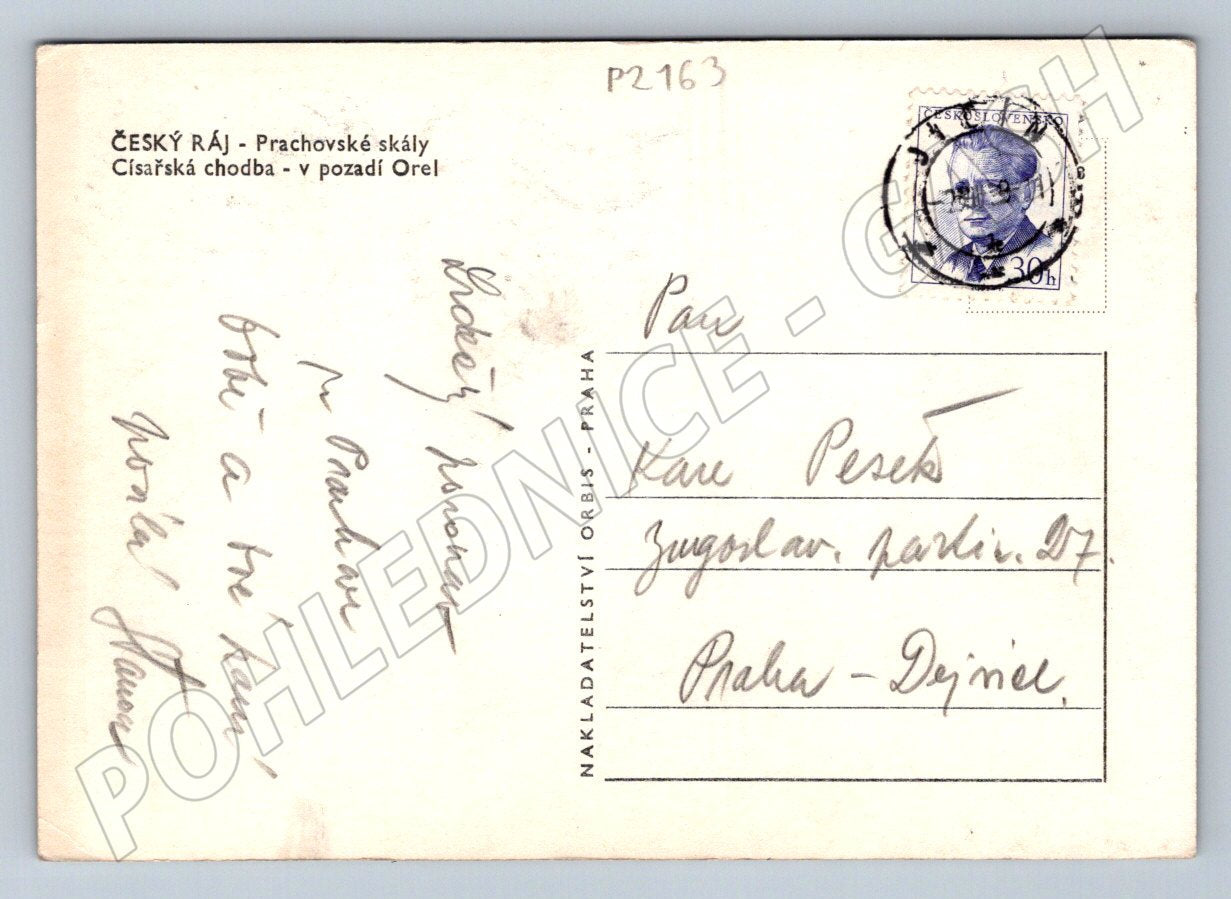 P2163
ČESKÝ RÁJ - Prachovské skály
Císařská chodba - v pozadí Orel
ČESKOSLOVENSKO
JIČÍN
30h
Srdečný pozdrav
z Prachova
Tobě a
posílá
NAKLADATELSTVÍ ORBIS - PRAHA
Pan
Pešek
Jugoslav. partiz. 27.
Praha - Dejvice.
POHLEDNICE - GASH